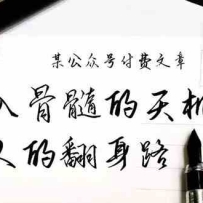 某公众号付费文章
入骨髓的天机
人的翻身路